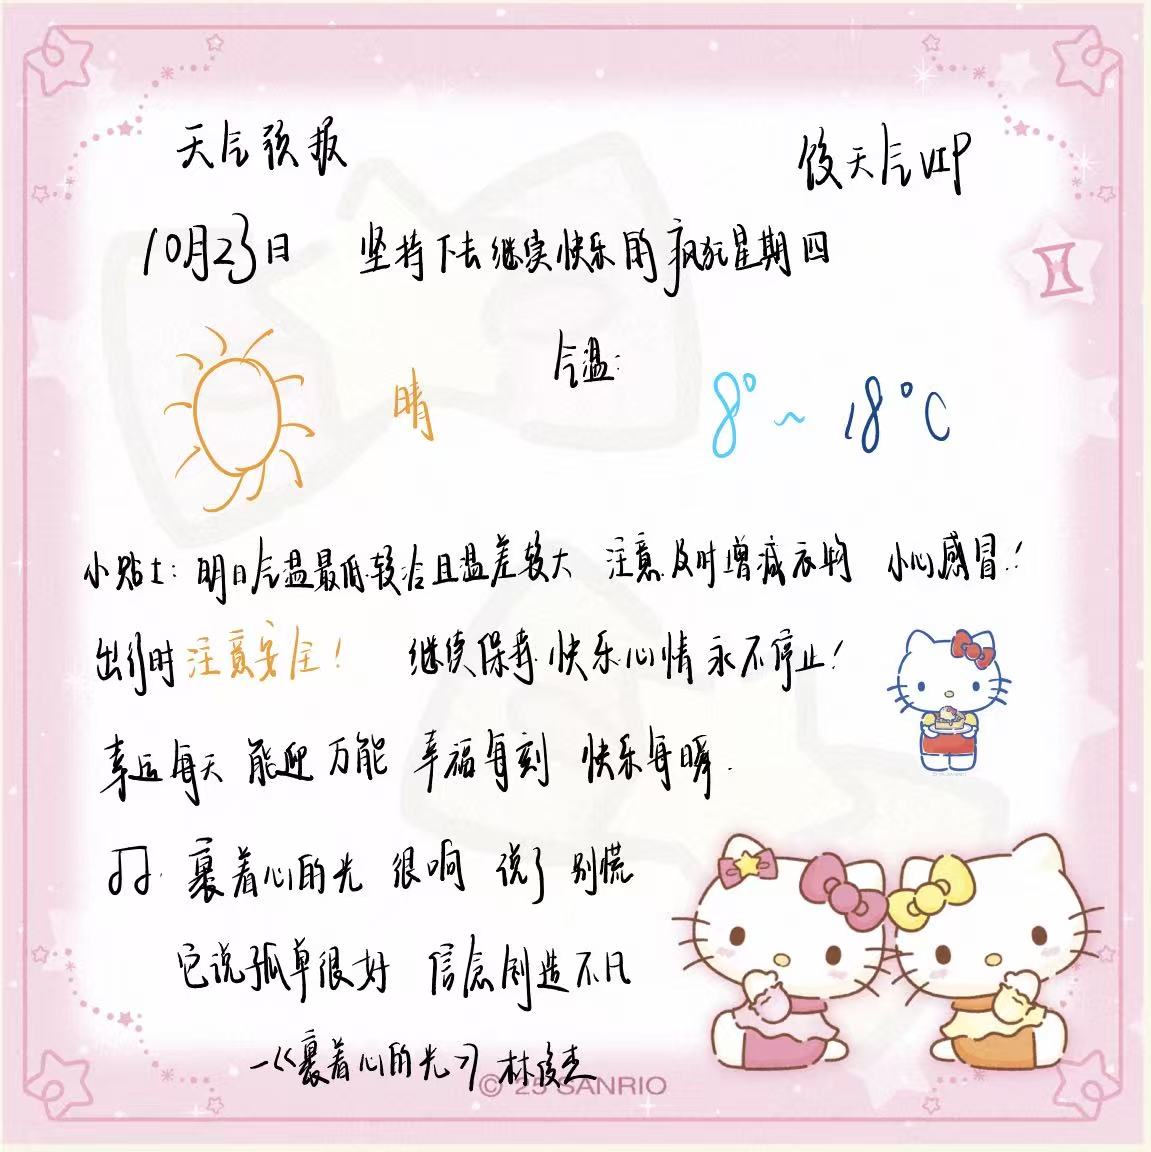 天气预报
饺天气VIP
10月23日 坚持下去继续快乐的疯狂星期四
气温:
晴
8°~18°C
小贴士:明日气温最低较冷且温差较大 注意及时增减衣物 小心感冒!
出行时注意安全! 继续保持快乐心情永不停止!
幸运每天 能迎万能 幸福每刻 快乐每瞬.
裹着心的光 很响 说了别慌
它说孤单很好 信念创造不凡
—《裹着心的光》林俊杰
© '25 SANRIO